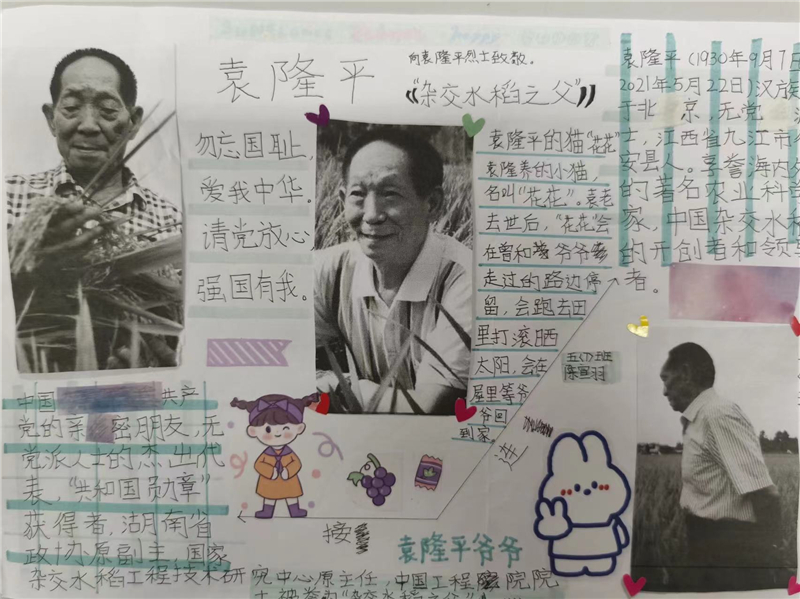 袁隆平
向袁隆平烈士致敬。
《“杂交水稻之父”》
勿忘国耻，
爱我中华。
请党放心
强国有我。
袁隆平的猫“花花”
袁隆养的小猫，
名叫“花花”。袁老
去世后，“花花”会
在曾和爷爷
走过的路边停
留，会跑去田
里打滚晒
太阳，会在
屋里等爷
爷回
到家。
袁隆平（1930年9月7日
2021年5月22日）汉族
于北京，无党
士，江西省九江市
安县人。享誉海内外
的著名农业科学
家，中国杂交水稻
的开创者和领导
者。
五(7)班
连
中国 共产
党的亲密朋友，无
党派人士的杰出代
表，“共和国勋章”
获得者，湖南省
政协原副主，国家
杂交水稻工程技术研究中心原主任，中国工程院院
士被誉为“杂交水稻之父”
接
袁隆平爷爷